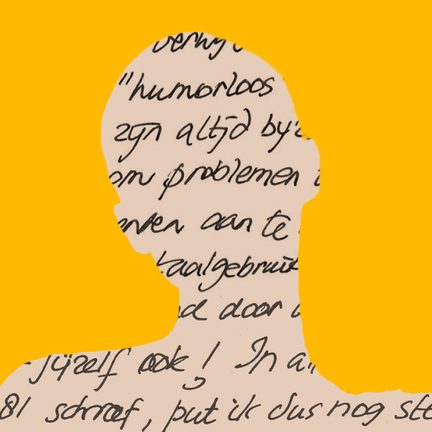 "humorloos
zijn altijd
om problemen
aan te
taalgebruik
door
jijzelf ook! In
81 schreef, put ik dus nog